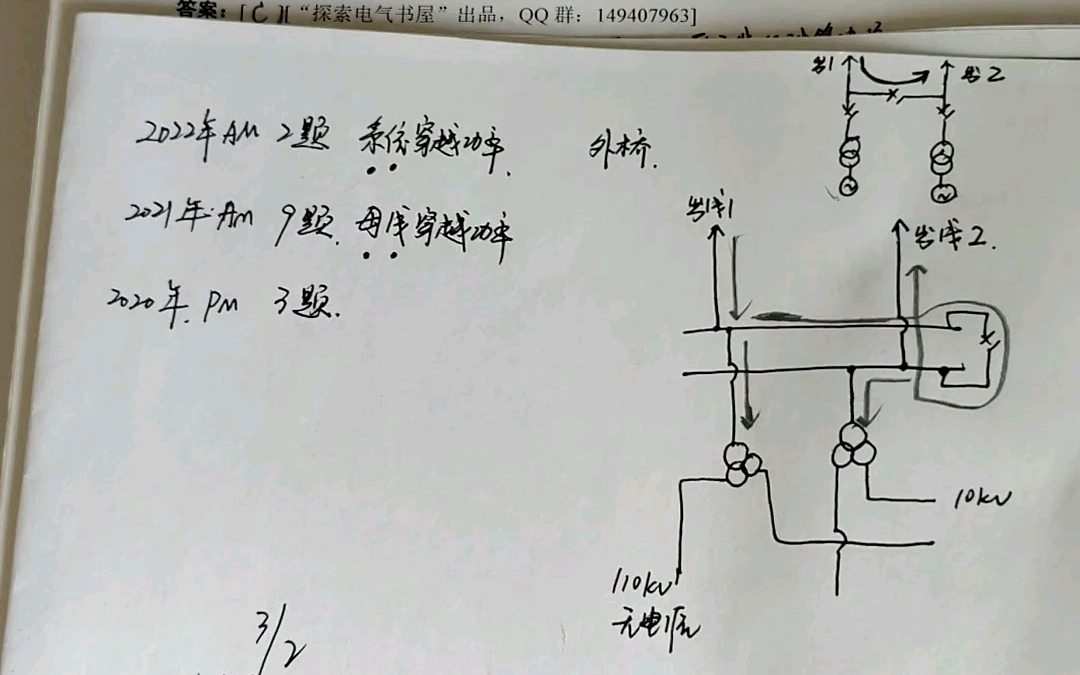 答案:[C]["探索电气书屋"出品,QQ 群:149407963]
出1
出2
2022年AM 2题 系统穿越功率、 外桥.
2021年.Am 9题. 母线穿越功率
2020年.PM 3题.
出线1
出线2.
10kV
110kV
无电源
3/2